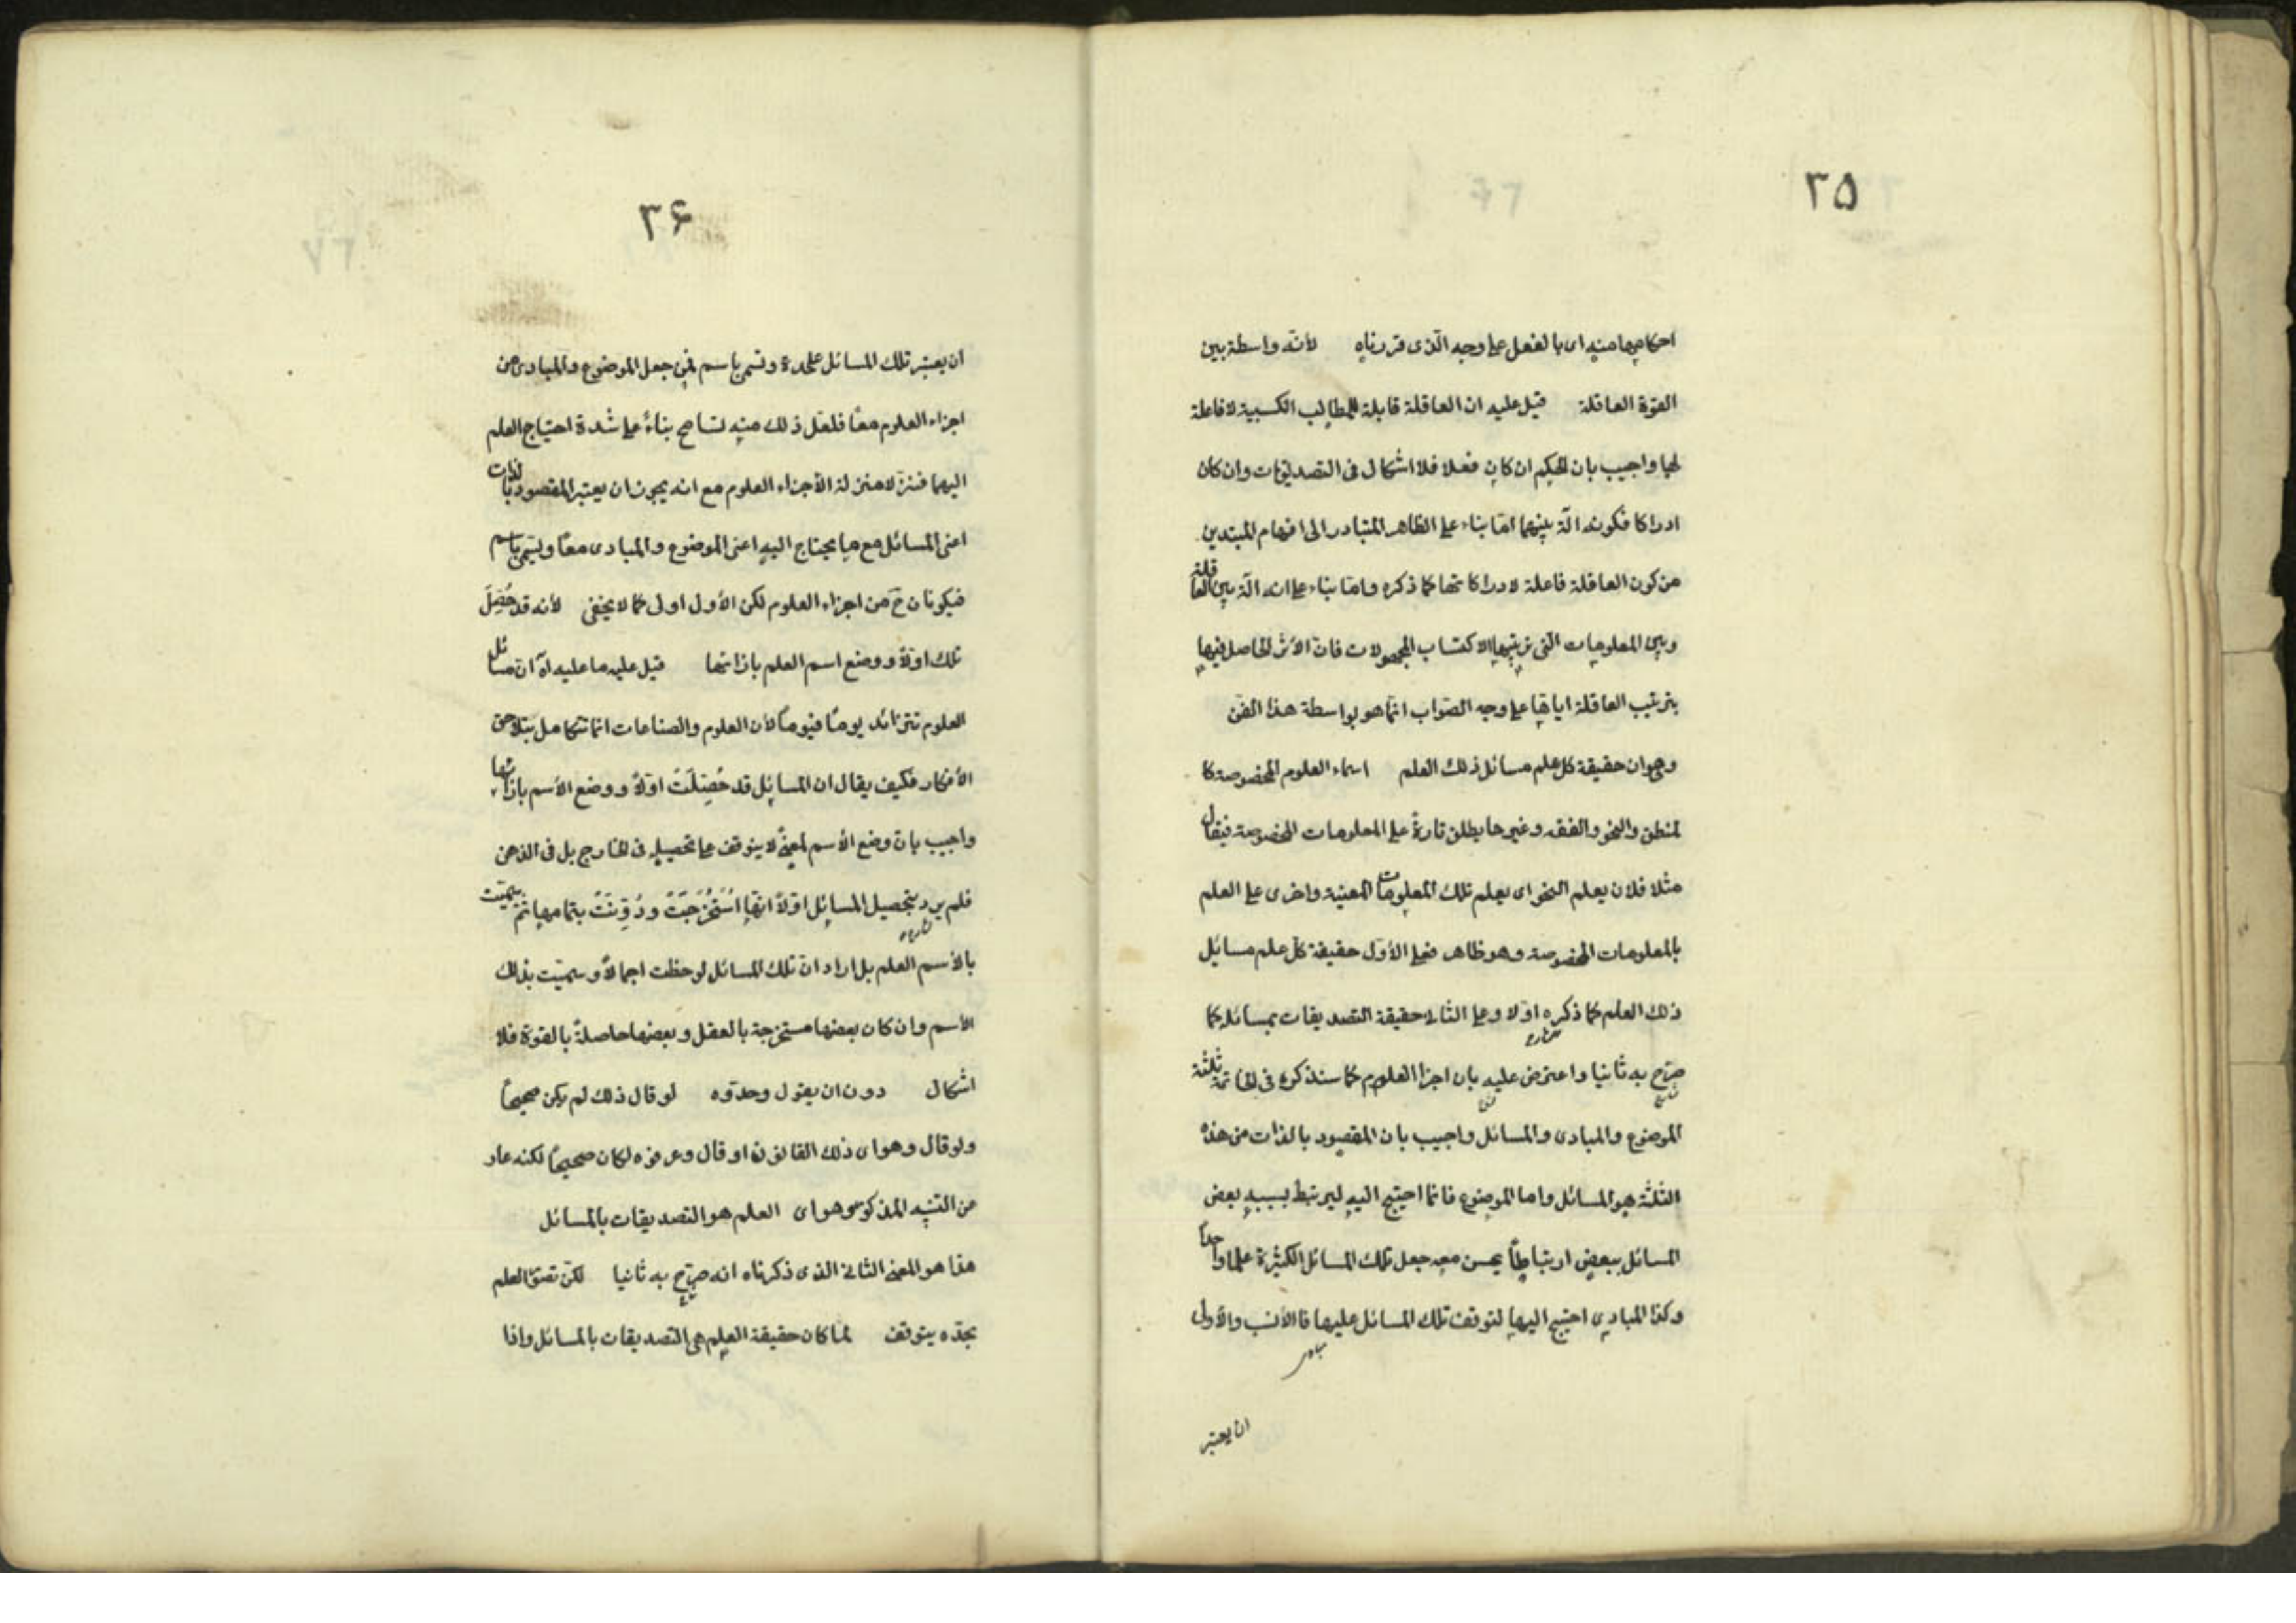 ٢٥
احكامها منه اى بالفعل على وجه الذى قررناه لأنه واسطة بين
القوة العاقلة قيل عليه ان العاقلة قابلة للمطالب الكسبية لا فاعلة
لها واجيب بان الحكم ان كان فعلا فلا اشكال فى التصديقات وان كان
ادراكا فكونه الة بينهما امّا بناء على الظاهر المتبادر الى افهام المبتدين
من كون العاقلة فاعلة لادراكاتها كما ذكره وامّا بناء على انه الة بين العاقلة
وبين المعلومات التى ترتبها لاكتساب المجهولات فان الأثر الحاصل فيها
بترتيب العاقلة اياها على وجه الصّواب انّما هو بواسطة هذا الفن
وهو ان حقيقة كل علم مسائل ذلك العلم اسماء العلوم المخصوصة كا
لمنطق والنحو والفقه وغيرها يطلق تارةً على المعلومات المخصوصة فيقال
مثلا فلان يعلم النحو اى يعلم تلك المعلومات المعينة واخرى على العلم
بالمعلومات المخصوصة وهو ظاهر فعلى الأوّل حقيقة كلّ علم مسايل
ذلك العلم كما ذكره اوّلا وعلى الثانى حقيقة التصديقات بمسائله كما
شارح
صرّح به ثانيا واعترض عليه بان اجزا العلوم كما سنذكره فى الخاتمة ثلثة
الموضوع والمبادى والمسائل واجيب بان المقصود بالذات من هذه
الثلثة هو المسائل واما الموضوع فانما احتيج اليه ليرتبط بسببه بعض
المسائل ببعض ارتباطاً يحسن معه جعل تلك المسائل الكثيرة علما واحداً
وكذا المبادى احتيج اليها لتوقف تلك المسائل عليها فالأنسب والأولى
ان يعتبر
٣۶
ان يعتبر تلك المسائل علحدة وتسمى باسم فمن جعل الموضوع والمبادى من
اجزاء العلوم معًا فلعل ذلك منه تسامح بناءً على شدة احتياج العلم
اليهما فنزلا منزلة الأجزاء العلوم مع انه يجوز ان يعتبر المقصود بالذات
اعنى المسائل مع ما يحتاج اليه اعنى الموضوع والمبادى معًا ويسمى باسم
فيكونان ح من اجزاء العلوم لكن الأول اولى كما لا يخفى لأنه قد حُصِلَ
تلك اولاً ووضع اسم العلم بازائها قيل عليه ما عليه لانّ مسائل
العلوم تتزائد يومًا فيومًا لأن العلوم والصناعات انما تتكامل بتلاحق
الأفكار فكيف يقال ان المسايل قد حُصِّلَتْ اوّلاً ووضع الأسم بازائها
واجيب بان وضع الأسم لمعنىً لا يتوقف على تحصيله فى الخارج بل فى الذهن
فلم يرد بتحصيل المسايل اوّلاً انها اُسْتُخْرِجَتْ ودُوِّنَتْ بتمامها ثم سميّت
شارح
بالأسم العلم بل اراد انّ تلك المسائل لوحظت اجمالاً وسميّت بذلك
الأسم وان كان بعضها مستخرجة بالعقل وبعضها حاصلةً بالقوة فلا
اشكال دون ان يقول وحدّوه لو قال ذلك لم يكن صحيحًا
ولو قال وهو اى ذلك القانون او قال وعرفوه لكان صحيحًا لكنه عار
من التنبيه المذكور وهو اى العلم هو التصديقات بالمسائل
هذا هو المعنى الثانى الذى ذكرناه انه صرّح به ثانيا لكن تصوّر العلم
بحدّه يتوقف لما كان حقيقة العلم هى التصديقات بالمسائل واذا